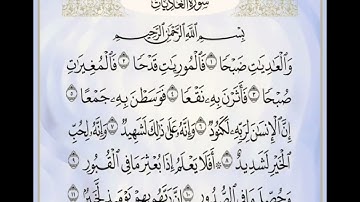 سورة العاديات
بِسْمِ اللَّهِ الرَّحْمَٰنِ الرَّحِيمِ
وَالْعَادِيَاتِ ضَبْحًا ١ فَالْمُورِيَاتِ قَدْحًا ٢ فَالْمُغِيرَاتِ
صُبْحًا ٣ فَأَثَرْنَ بِهِ نَقْعًا ٤ فَوَسَطْنَ بِهِ جَمْعًا ٥
إِنَّ الْإِنسَانَ لِرَبِّهِ لَكَنُودٌ ٦ وَإِنَّهُ عَلَىٰ ذَٰلِكَ لَشَهِيدٌ ٧ وَإِنَّهُ لِحُبِّ
الْخَيْرِ لَشَدِيدٌ ٨ ۞ أَفَلَا يَعْلَمُ إِذَا بُعْثِرَ مَا فِي الْقُبُورِ ٩
وَحُصِّلَ مَا فِي الصُّدُورِ ١٠ إِنَّ رَبَّهُم بِهِمْ يَوْمَئِذٍ لَّخَبِيرٌ ١١